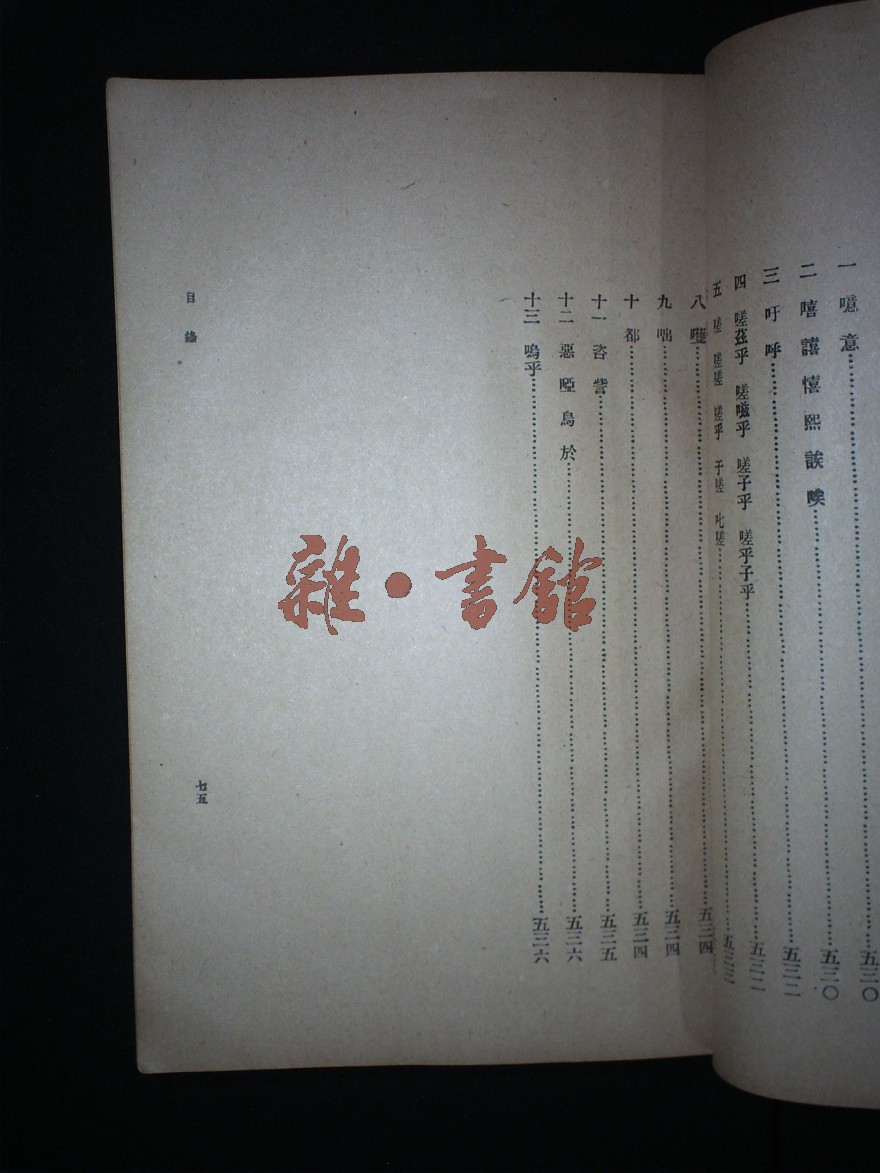 一 噫 意……五三〇
二 嘻 譆 憘 熙 誒 唉……五三〇
三 吁 呼……五三二
四 嗟茲乎 嗟嗞乎 嗟子乎 嗟乎子乎……五三二
五 嗟 嗟嗟 嗟乎 于嗟 叱嗟……五三三
八 嚄……五三四
九 咄……五三四
十 都……五三四
十一 咨 訾……五三五
十二 惡 啞 烏 於……五三六
十三 嗚乎……五三六
目錄
七五
雜·書館